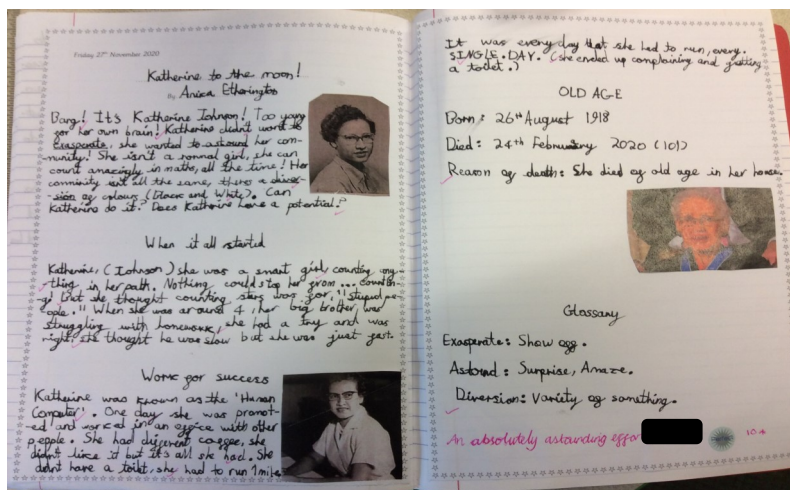 Friday 27th November 2020
Katherine to the moon!
By Anica Etherington
Bang! It's Katherine Johnson! Too young
for her own brain! Katherine didn't want to
exasperate, she wanted to astound her com-
-munity! She isn't a normal girl, she can
count amazingly in maths, all the time! Her
community isn't all the same, theres a diver-
-sion of colours (Black and White). Can
Katherine do it? Does Katherine have a potential?
When it all started
Katherine, (Johnson) she was a smart girl, counting any-
-thing in her path. Nothing could stop her from... counting
But she thought counting stars was for, "stupid pe-
ople." When she was around 4, her big brother, was
struggling with homework, she had a try and was
right, she thought he was slow but she was just fast.
Work for success
Katherine was known as the 'Human
Computer'. One day she was promot-
ed and worked in an office with other
people. She had different coffee, she
didn't like it but it's all she had. She
didnt have a toilet, she had to run 1 mile
It was every day that she had to run, every.
SINGLE. DAY. (she ended up complaining and getting
a toilet.)
OLD AGE
Born: 26th August 1918
Died: 24th February 2020 (101)
Reason of death: She died of old age in her house.
Glossary
Exasperate: Show off.
Astound: Surprise, Amaze.
Diversion: Variety of something.
An absolutely astounding effor